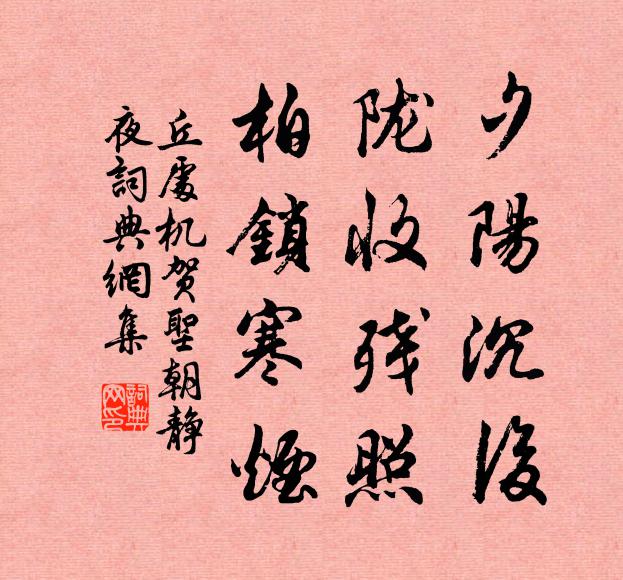 夕陽沉後
陇收残照
柏鎖寒煙
丘處机贺聖朝静
夜詞典網集
詞典网印